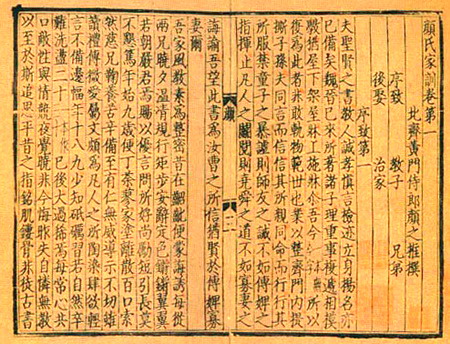 顏氏家訓卷第一
北齊黃門侍郎顏之推撰
序致 教子 兄弟
後娶 治家
序致第一
夫聖賢之書教人誠孝慎言檢迹立身揚名亦
已備矣魏晉已來所著諸子理重事複遞相模
斆猶屋下架屋牀上施牀爾吾今所以
復為此者非敢軌物範世也業以整齊門內提
撕子孫夫同言而信信其所親同命而行行其
所服禁童子之暴謔則師友之誡不如傅婢之
指揮止凡人之鬭鬩則堯舜之道不如寡妻之
顏 一
誨諭吾望此書為汝曹之所信猶賢於傅婢寡
妻爾
吾家風教素為整密昔在齠齔便蒙誨誘每從
兩兄曉夕溫凊規行矩步安辭定色鏘鏘翼翼
若朝嚴君焉賜以優言問所好尚勵短引長莫
不懇篤年始九歲便丁荼蓼家塗離散百口索
然慈兄鞠養苦辛備至有仁無威導示不切雖
讀禮傳微愛屬文頗為凡人之所陶染肆欲輕
言不備邊幅年十八九少知砥礪習若自然卒
難洗盪二十已後大過稀焉每常心共
口敵性與情競夜覺曉非今悔昨失自憐無教
以至於斯追思平昔之指銘肌鏤骨非徒古書